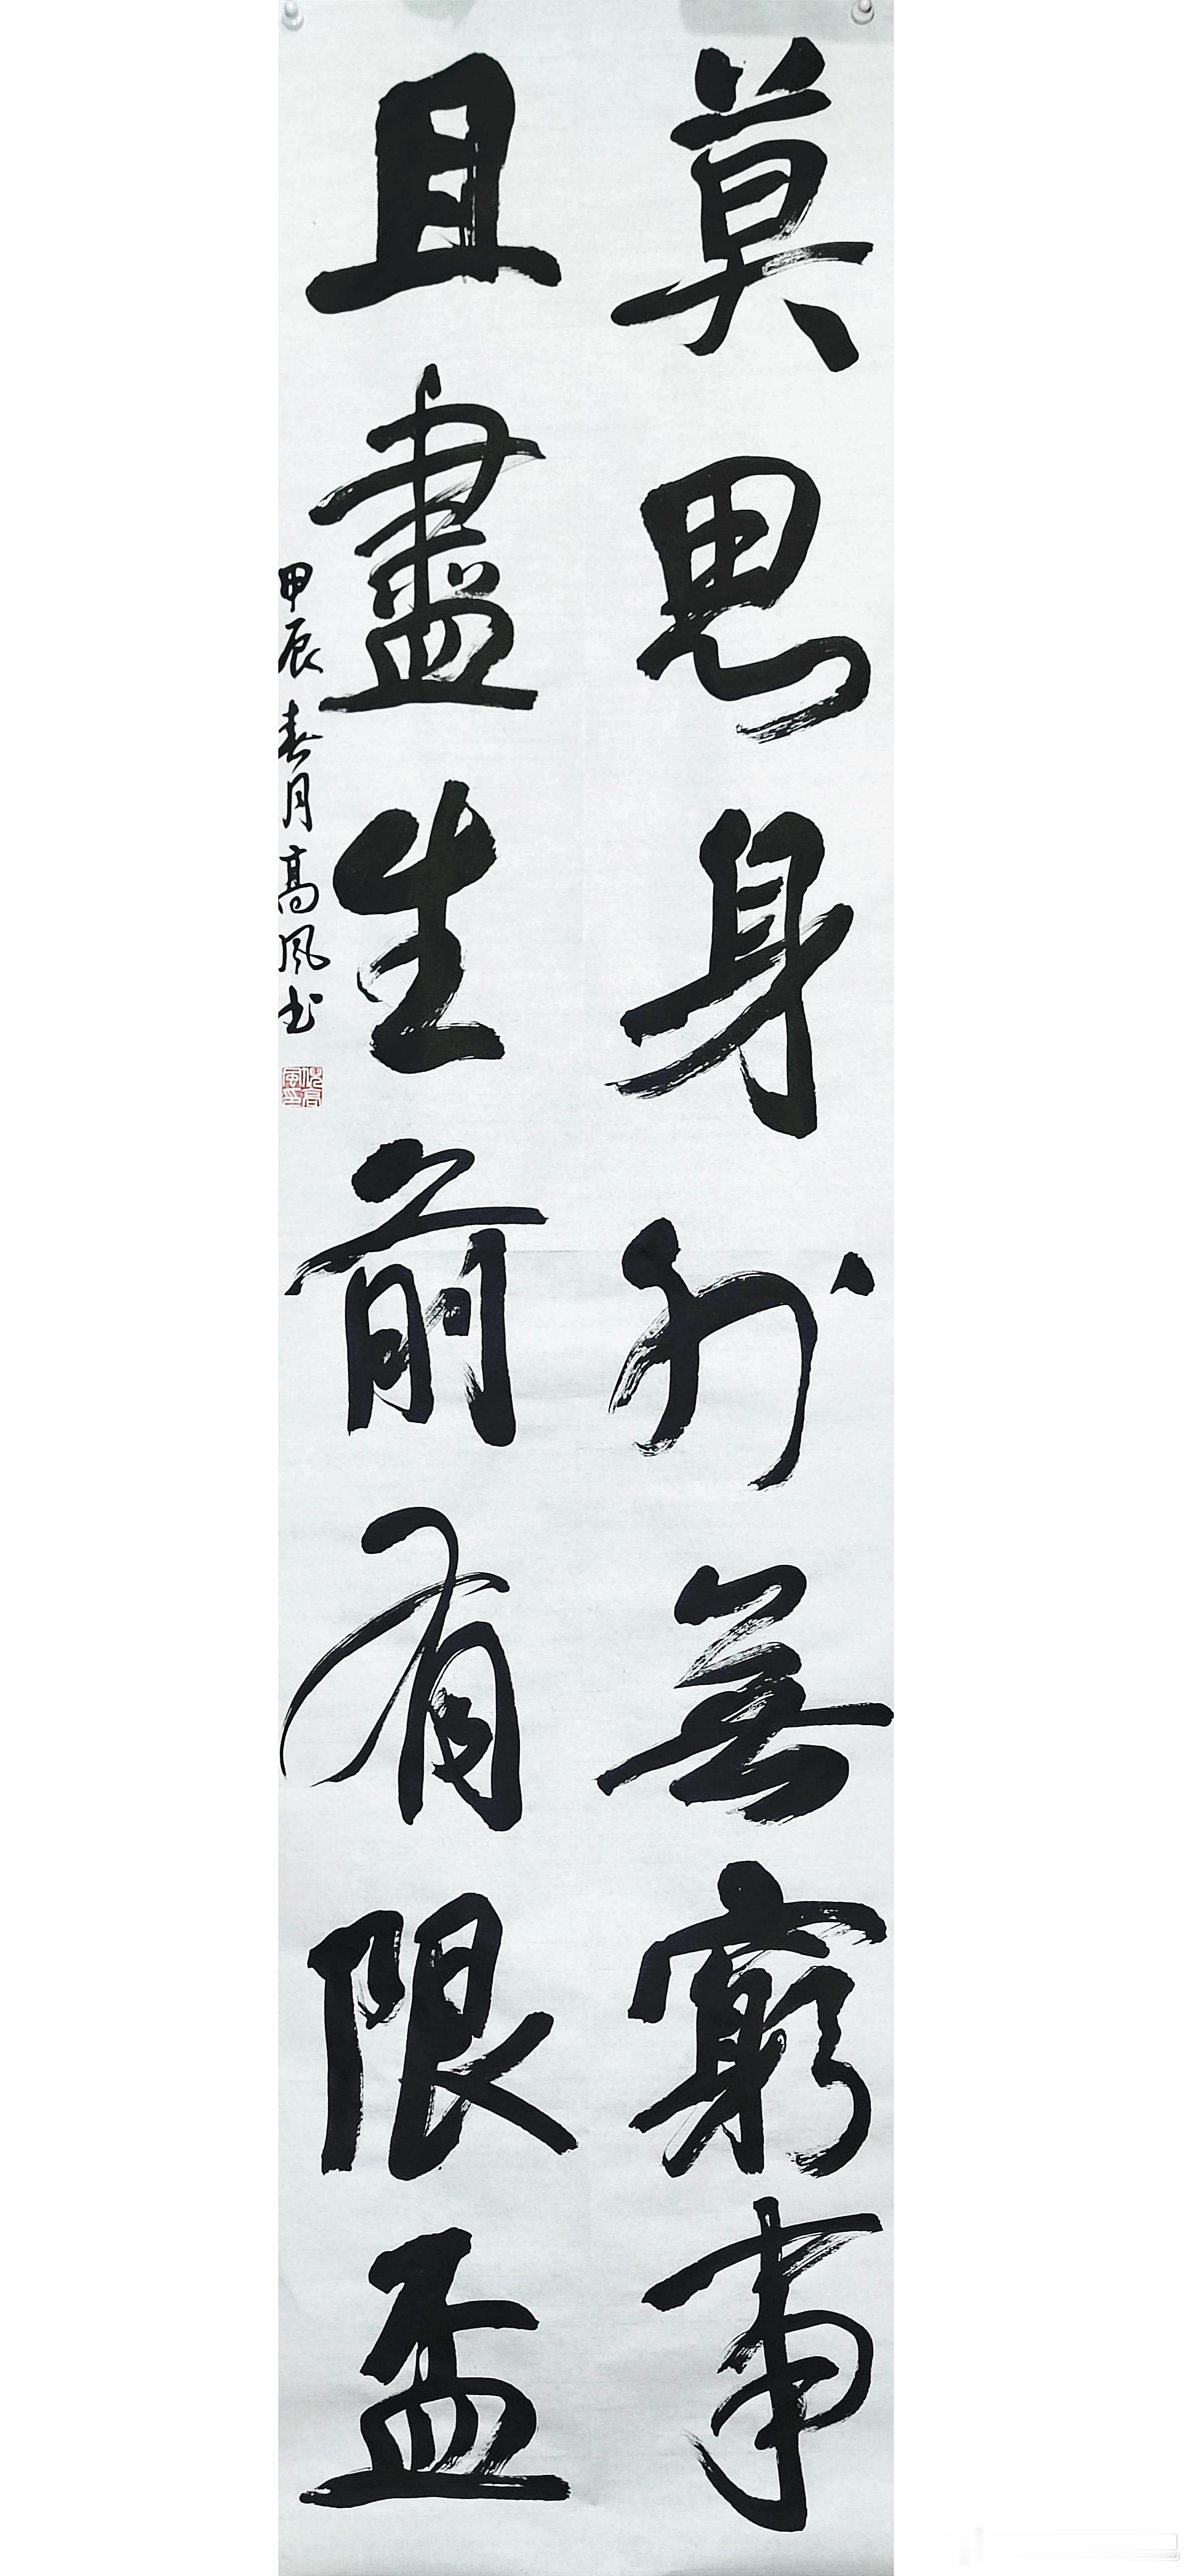 莫思身外無窮事
且盡生前有限盃
甲辰春月高风书